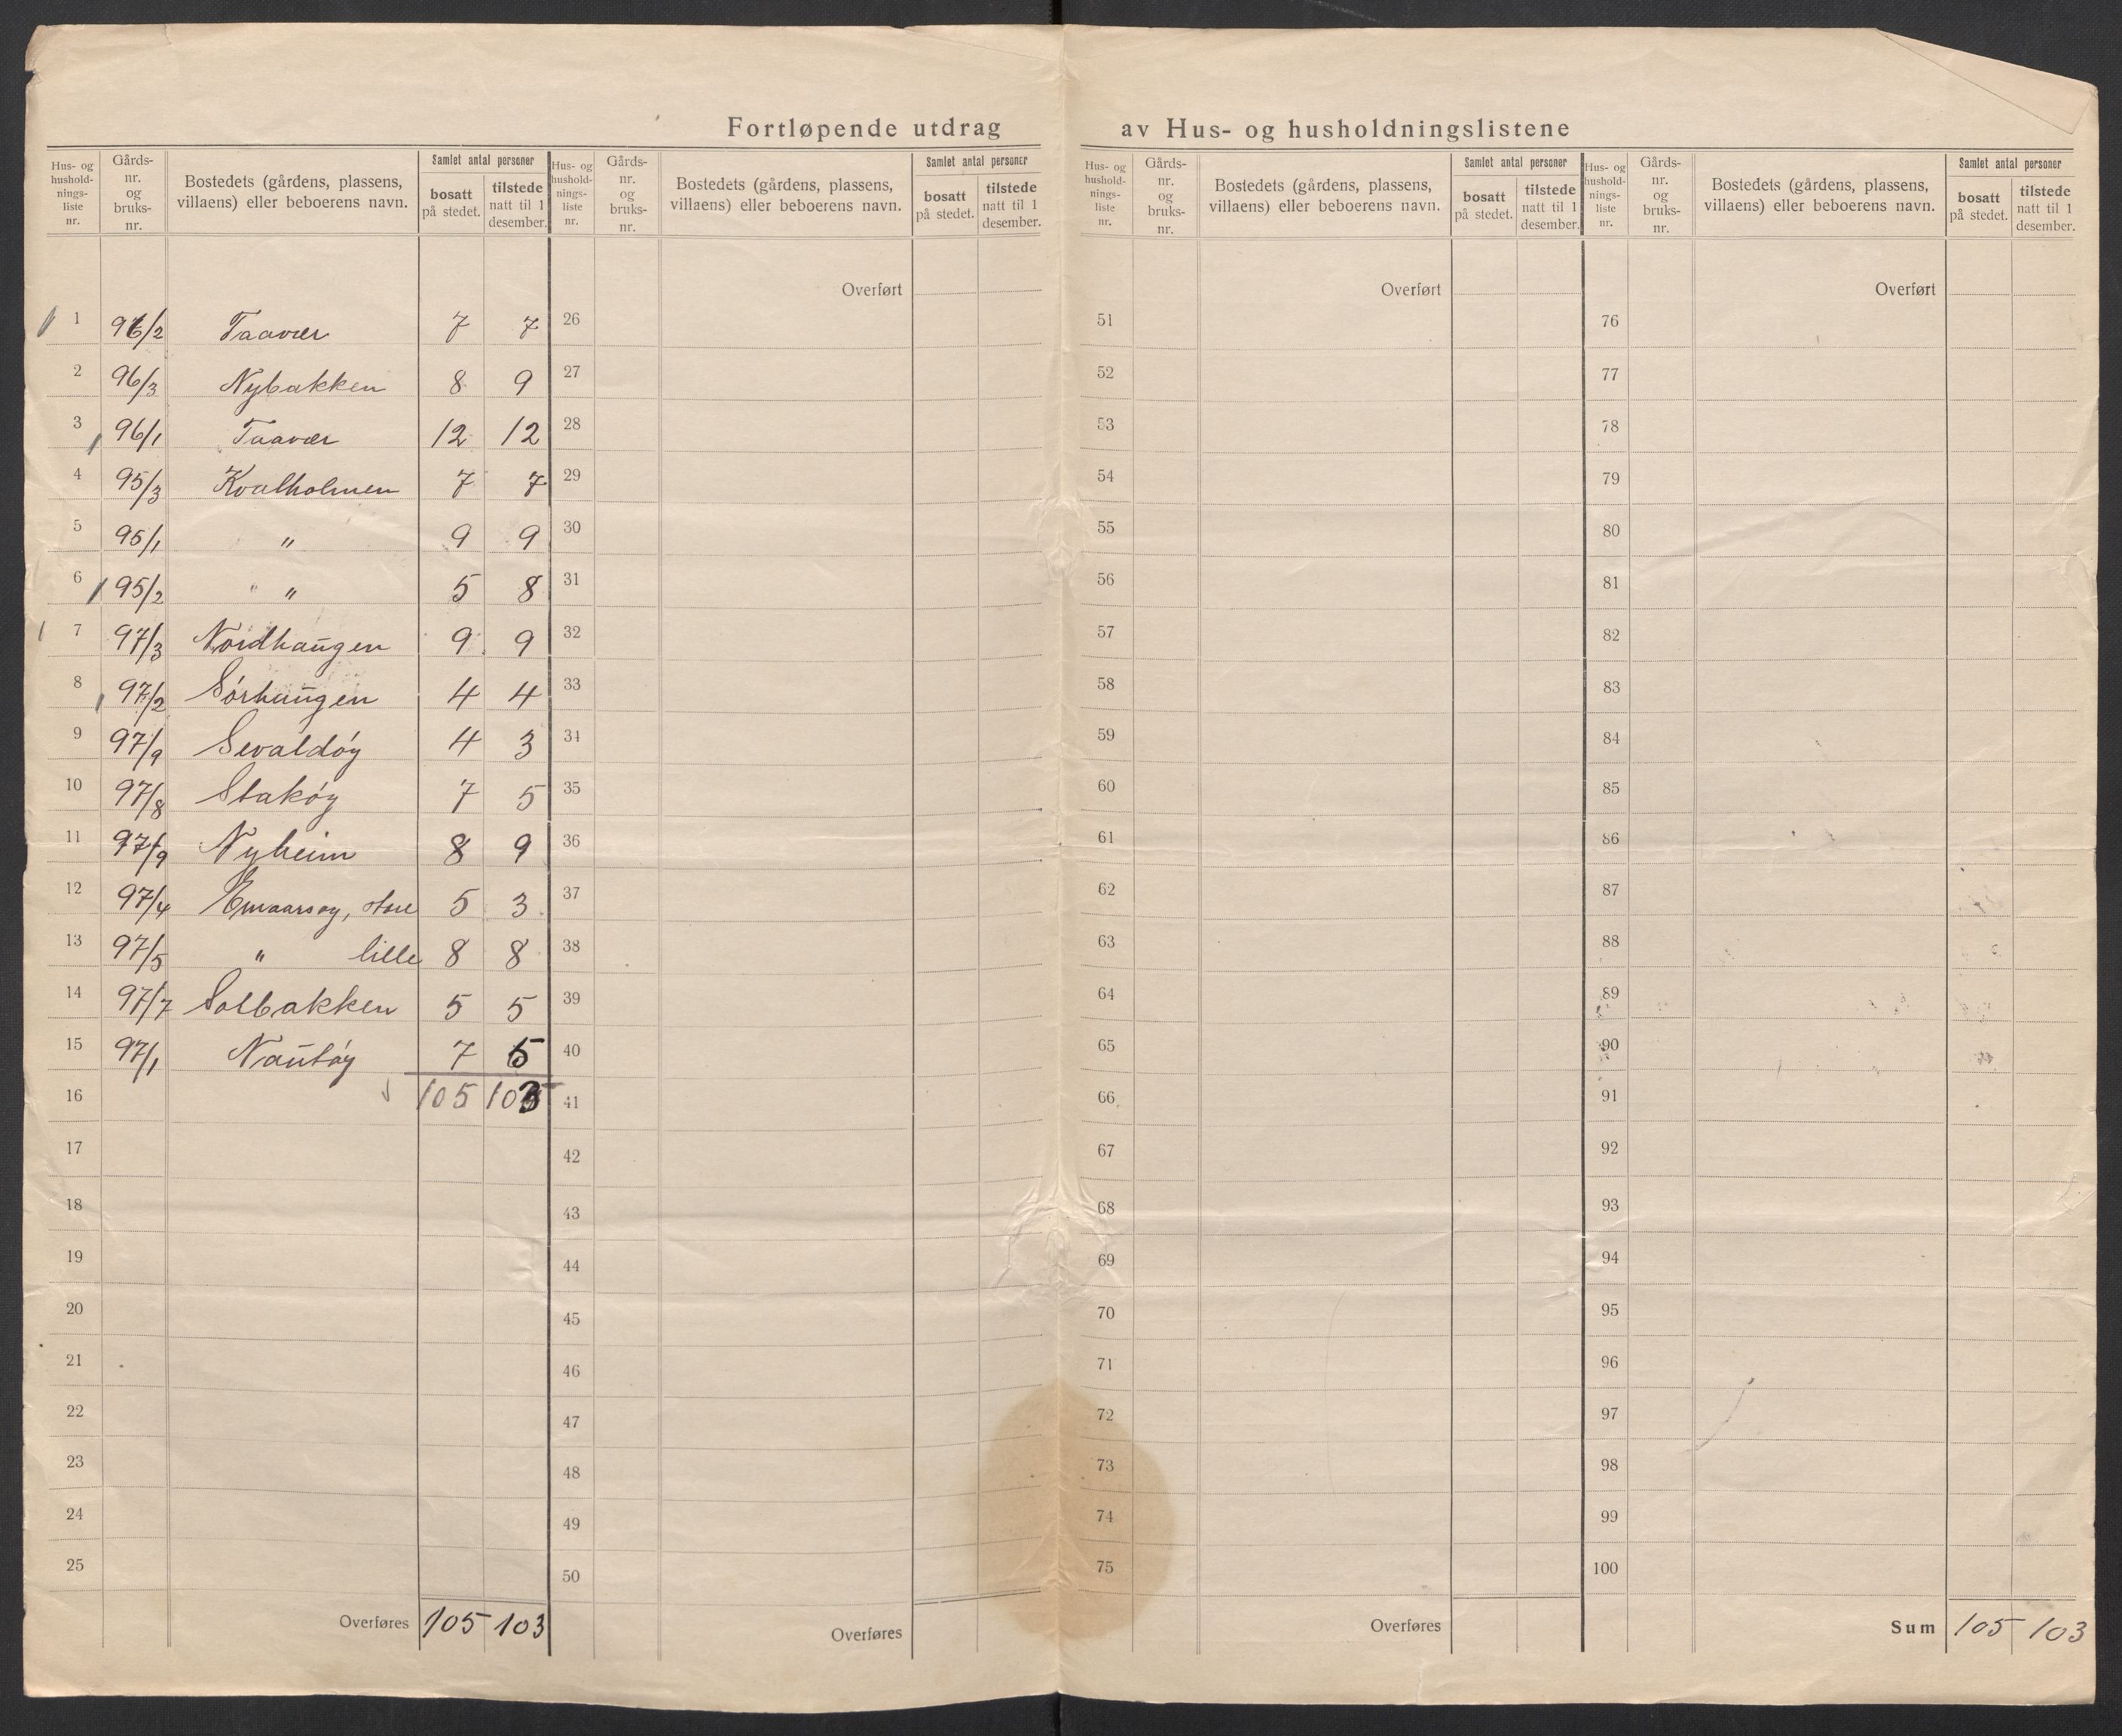 Fortløpende utdrag av Hus- og husholdningslistene
Hus- og hushold-nings-liste nr. | Gårds-nr. og bruks-nr. | Bostedets (gårdens, plassens, villaens) eller beboerens navn. | Samlet antal personer | bosatt på stedet. | tilstede natt til 1 desember.
Hus- og hushold-nings-liste nr. | Gårds-nr. og bruks-nr. | Bostedets (gårdens, plassens, villaens) eller beboerens navn. | Samlet antal personer | bosatt på stedet. | tilstede natt til 1 desember.
Hus- og hushold-nings-liste nr. | Gårds-nr. og bruks-nr. | Bostedets (gårdens, plassens, villaens) eller beboerens navn. | Samlet antal personer | bosatt på stedet. | tilstede natt til 1 desember.
Hus- og hushold-nings-liste nr. | Gårds-nr. og bruks-nr. | Bostedets (gårdens, plassens, villaens) eller beboerens navn. | Samlet antal personer | bosatt på stedet. | tilstede natt til 1 desember.
Overført Overført Overført
1 96/2 Taavær 7 7 26 51 76
2 96/3 Nybakken 8 9 27 52 77
3 96/1 Taavær 12 12 28 53 78
4 95/3 Kvalholmen 7 7 29 54 79
5 95/1 " 9 9 30 55 80
6 95/2 " " 5 8 31 56 81
7 97/3 Nordhaugen 9 9 32 57 82
8 97/2 Sørhaugen 4 4 33 58 83
9 97/9 Sevaldøy 4 3 34 59 84
10 97/8 Stakøy 7 5 35 60 85
11 97/9 Nyheim 8 9 36 61 86
12 97/4 store 5 3 37 62 87
13 97/5 " lille 8 8 38 63 88
14 97/7 Solbakken 5 5 39 64 89
15 97/1 Nautøy 7 5 40 65 90
16 105 103 41 66 91
17 42 67 92
18 43 68 93
19 44 69 94
20 45 70 95
21 46 71 96
22 47 72 97
23 48 73 98
24 49 74 99
25 50 75 100
Overføres 105 103 Overføres Overføres Sum 105 103